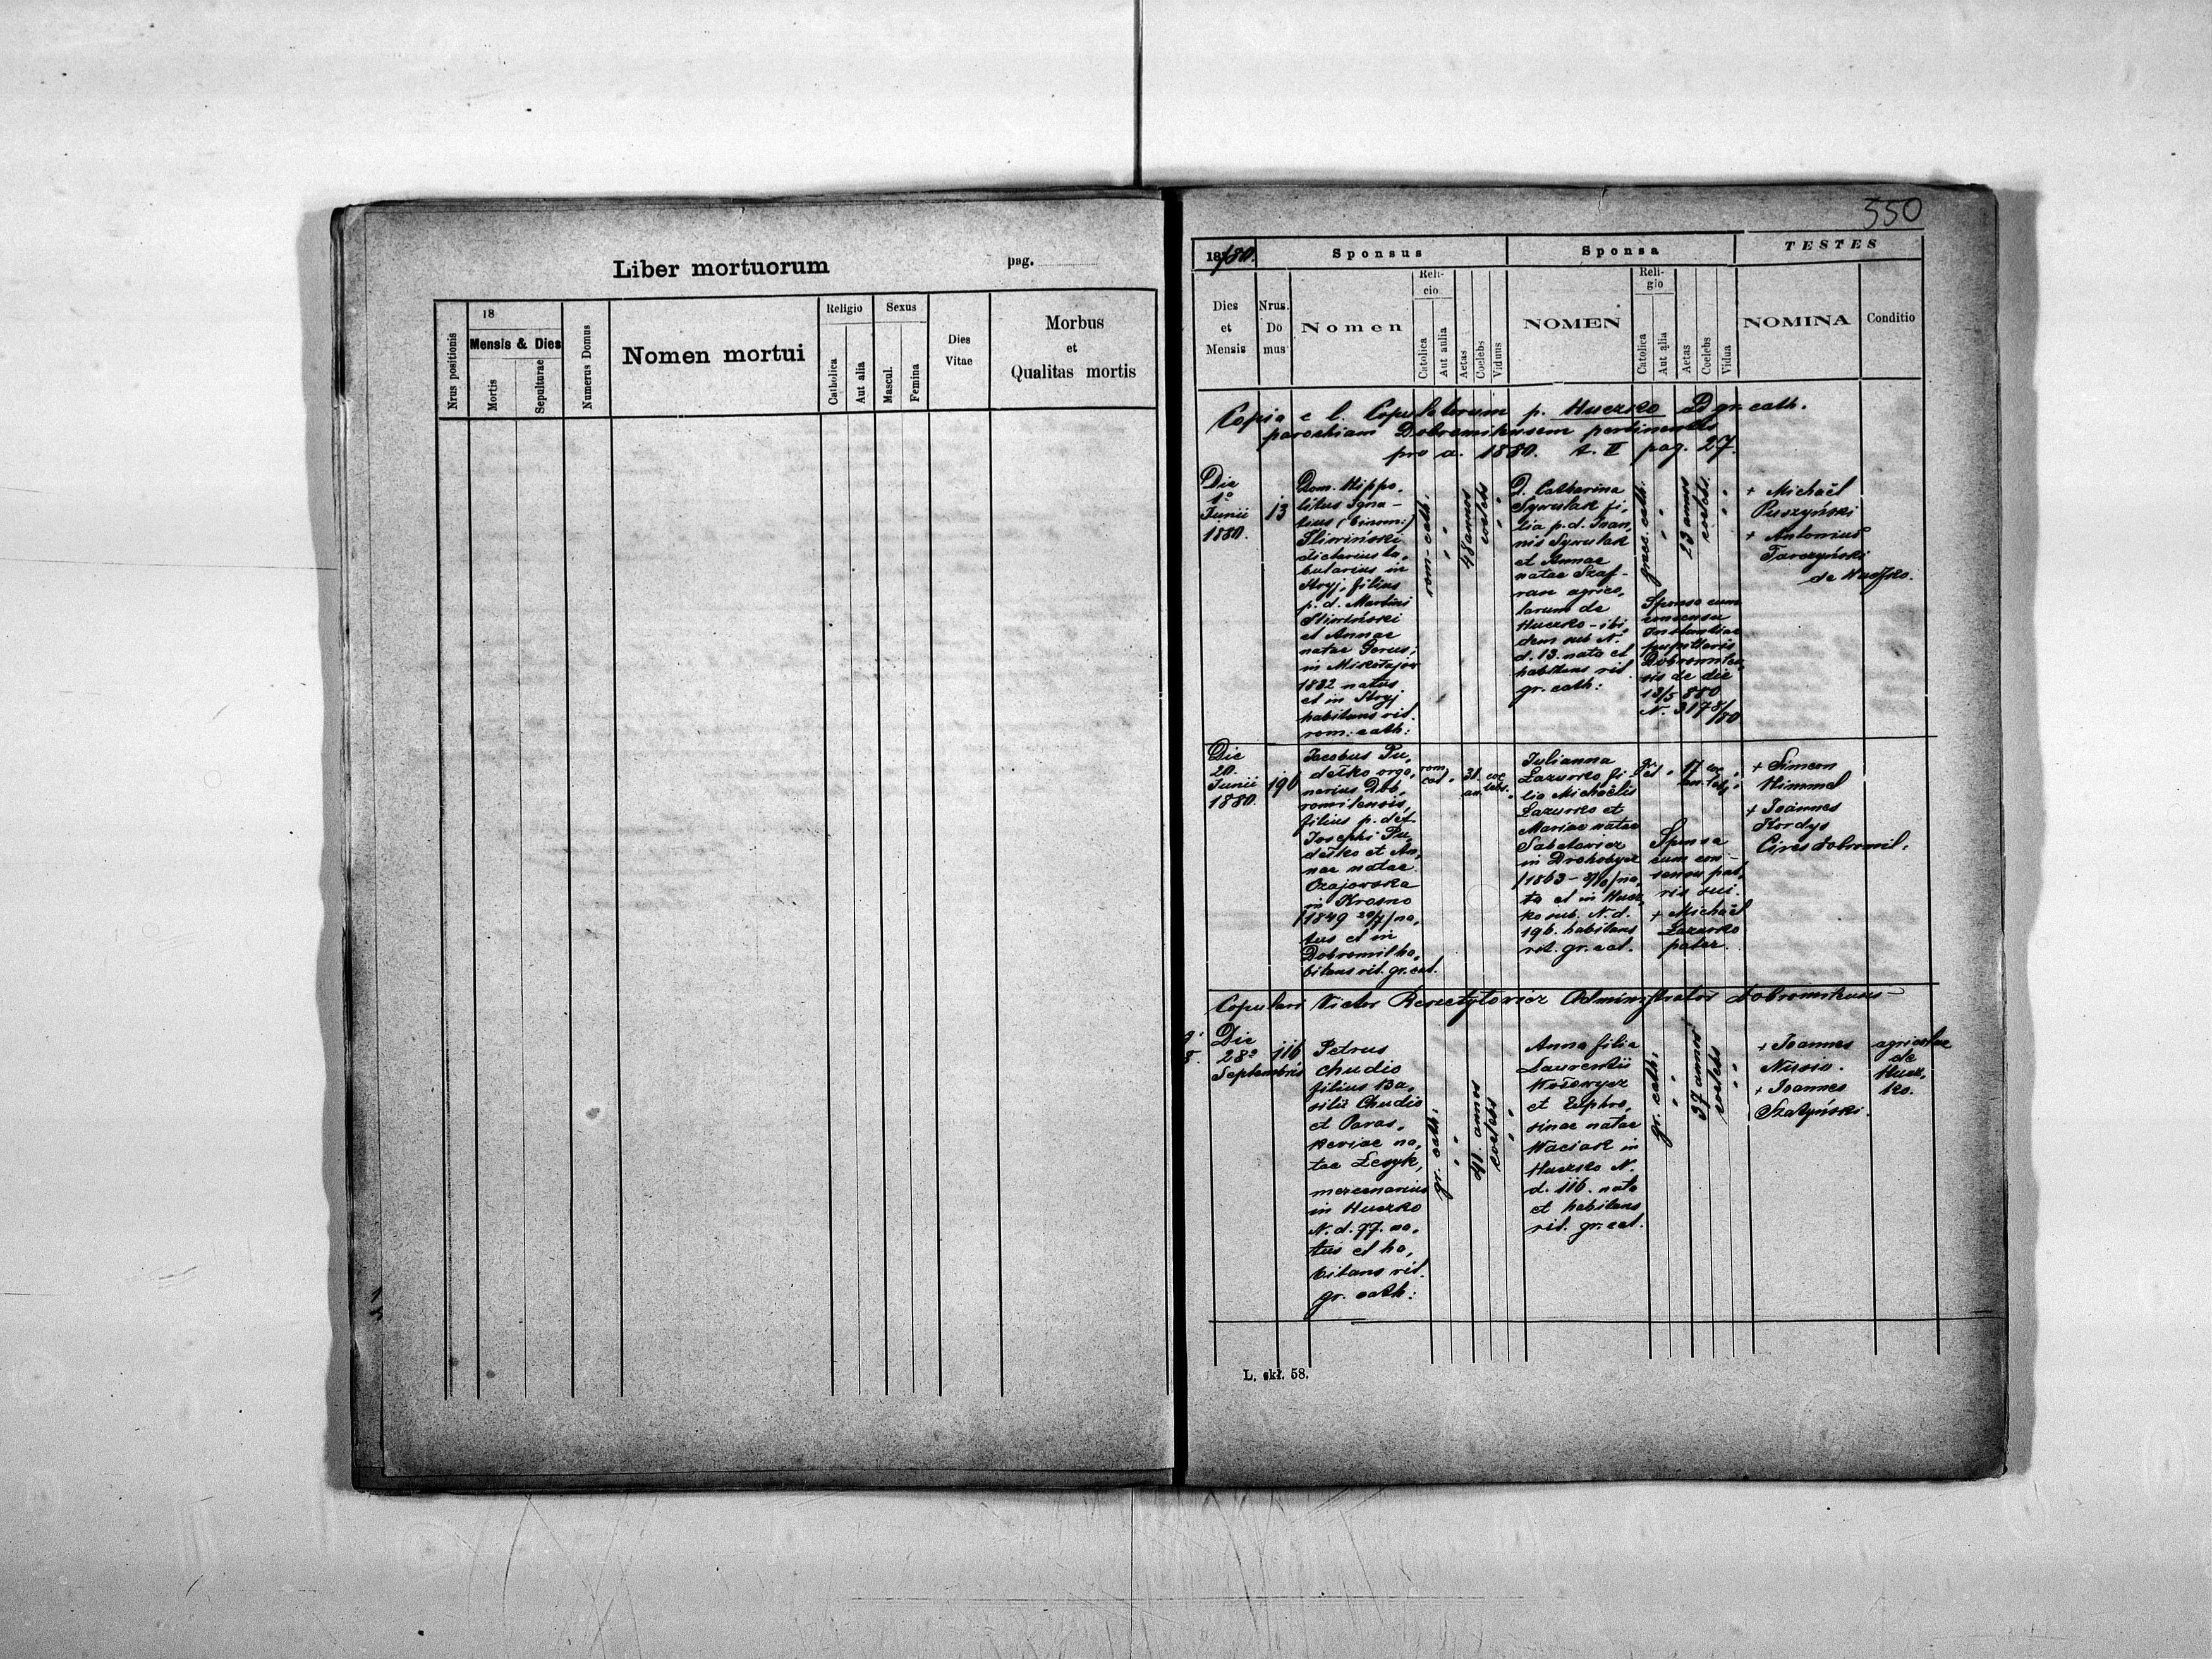 Liber mortuorum
pag.
Nrus positionis
18
Mensis & Dies
Mortis
Sepulturae
Numerus Domus
Nomen mortui
Religio
Catholica
Aut alia
Sexus
Mascul.
Femina
Dies
Vitae
Morbus
et
Qualitas mortis
550
1880.
Sponsus
Sponsa
TESTES
Dies
et
Mensis
Nrus.
Do
mus
Nomen
Reli-
cio
Catolica
Aut aulia
Aetas
Coelebs
Viduus
NOMEN
Reli-
gio
Catolica
Aut alia
Aetas
Coelebs
Vidua
NOMINA
Conditio
Copia e l. Copulatorum p. Huczko ad gr. cath.
parochiam Dobromilensem pertinentis
pro a. 1880. t. II pag. 27.
Die
1º
Junii
1880.
13
Dom. Hippo,
litus Igna-
tius (binom:)
Śliwiński
dietarius ta,
bularius in
Stryj, filius
p. d. Martini
Śliwiński
et Annae
natae
in Mikołajów
1832 natus
et in Stryj
habitans rit.
rom: cath:
rom-cath.
48 annos
coelebs
D. Catharina
Sywulak fi,
lia p. d. Ioan,
nis Sywulak
et Annae
natae Szaf-
ran agrico,
larum de
Huczko - ibi
dem sub N.
d. 13. nata et
habitans rit.
gr. cath:
graec. cath.
23 annos
coelebs.
Sponso cum
consensu
Instantiae
pupillaris
Dobromilen,
sis de die
13/5 880
N. 3178/
/80
+ Michaël
Puszyński
+ Antonius
Tarczyński
de Huczko.
Die
20.
Junii
1880.
196
Jacobus Pu,
dełko orga,
narius Dob,
romilensis,
filius p. def.
Josephi Pu,
dełko et An,
nae natae
Czajowska
in Krosno
1849 20/7 na,
tus et in
Dobromil ha,
bitans rit. gr. cat.
rom.
cat.
31.
an.
coe
lebs.
Julianna
Lazurko fi
lia Michaëlis
Lazurko et
Mariae natae
Sabatowicz
in Drohobycz
1863 - na,
ta et in Hucz,
ko sub. N. d.
196. habitans
rit. gr. cat.
gr.
ct
17
an.
Sponsa
cum con-
sensu pat,
ris sui.
+ Michaël
Lazurko
pater.
+ Simeon
Himmel
+ Joannes
Kordys
Cives dobromil.
Copulavi Victor Reszetyłowicz Administrator dobromilensis -
Die
28º
Septembris
116
Petrus
Chudio
filius Ba,
silii Chudio
et Paras,
keviae na,
tae Lesyk,
mercenarius
in Huczko
N. d. 77. na,
tus et ha,
bitans rit.
gr. cath:
gr. cath.
41. annos
coelebs
Anna filia
Laurentii
Kosowycz
et Euphro,
sinae natae
Waciak in
Huczko N.
d. 116. nata
et habitans
rit. gr. cat.
gr. cath.
37 annos
coelebs
+ Joannes
Nusio.
+ Joannes
Szatyński.
agricolae
de
Hucz,
ko.
L. skł. 58.